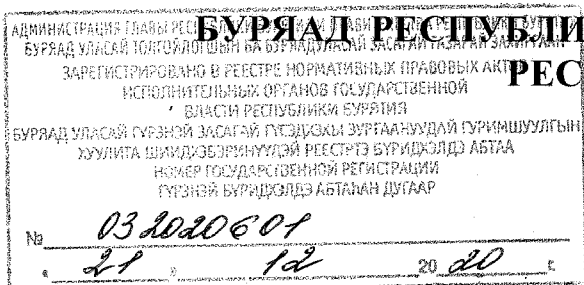 АДМИНИСТРАЦИЯ ГЛАВЫ
БУРЯАД РЕСПУБЛИ
БУРЯАД УЛАСАЙ
ЗАРЕГИСТРИРОВАНО В РЕЕСТРЕ НОРМАТИВНЫХ ПРАВОВЫХ
РЕС
ИСПОЛНИТЕЛЬНЫХ ОРГАНОВ ГОСУДАРСТВЕННОЙ
ВЛАСТИ РЕСПУБЛИКИ БУРЯТИЯ
БУРЯАД УЛАСАЙ ГҮРЭНЭЙ ЗАСАГАЙ ГҮЙСЭДХЭХЫ ЗУРГААНУУДАЙ ГУРИМШУУЛГЫН
ХУУЛИТА ШИИДХЭБЭРИНҮҮДЭЙ РЕЕСТРТЭ БҮРИДХЭЛДЭ АБТАА
НОМЕР ГОСУДАРСТВЕННОЙ РЕГИСТРАЦИИ
ГҮРЭНЭЙ БҮРИДХЭЛДЭ АБТАҺАН ДУГААР
№ 032020601
« 21 » 12 20 20 г.